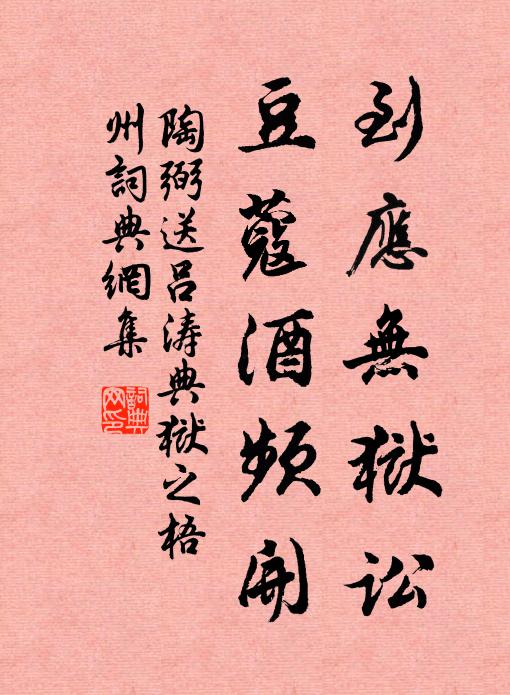 到應無獄訟
豆蔻酒频開
陶弼送呂涛典獄之梧
州詞典網集
詞典
网印